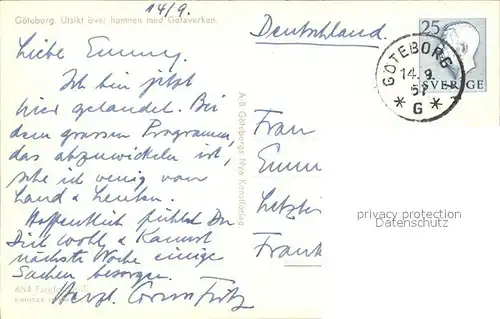 14/9.
Göteborg. Utsikt över hamnen med Götaverken.
Liebe Emmy.
Ich bin jetzt
hier gelandet. Bei
dem grossen Programm,
das abzuwickeln ist,
sehe ich wenig vom
Land & Leuten.
Hoffentlich fühlst Du
Dich wohl & kannst
nächste Woche einige
Sachen besorgen.
Herzl.
654
A/B Göteborgs Nya Konstförlag
Deutschland.
25
SVERIGE
GÖTEBORG
14.9.
57
* G *
Frau
Emm
Letzti
Frank
privacy protection
www.ansichtskarten-lexikon.de